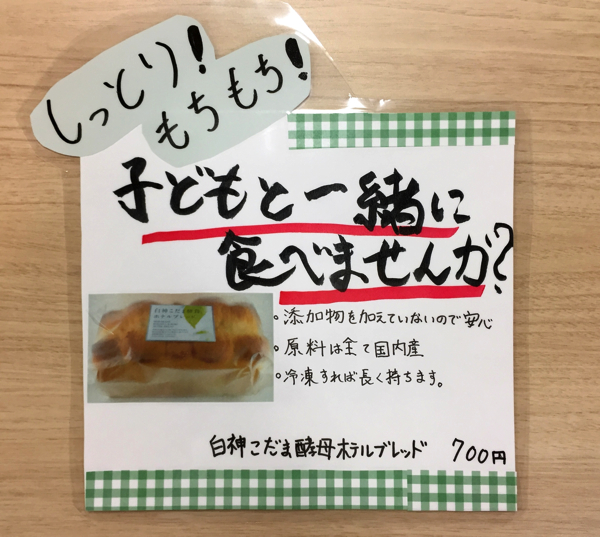 しっとり!
もちもち!
子どもと一緒に
食べませんか?
白神こだま酵母
ホテルブレッド
。添加物を加えていないので安心
。原料は全て国内産
。冷凍すれば長く持ちます。
白神こだま酵母ホテルブレッド 700円